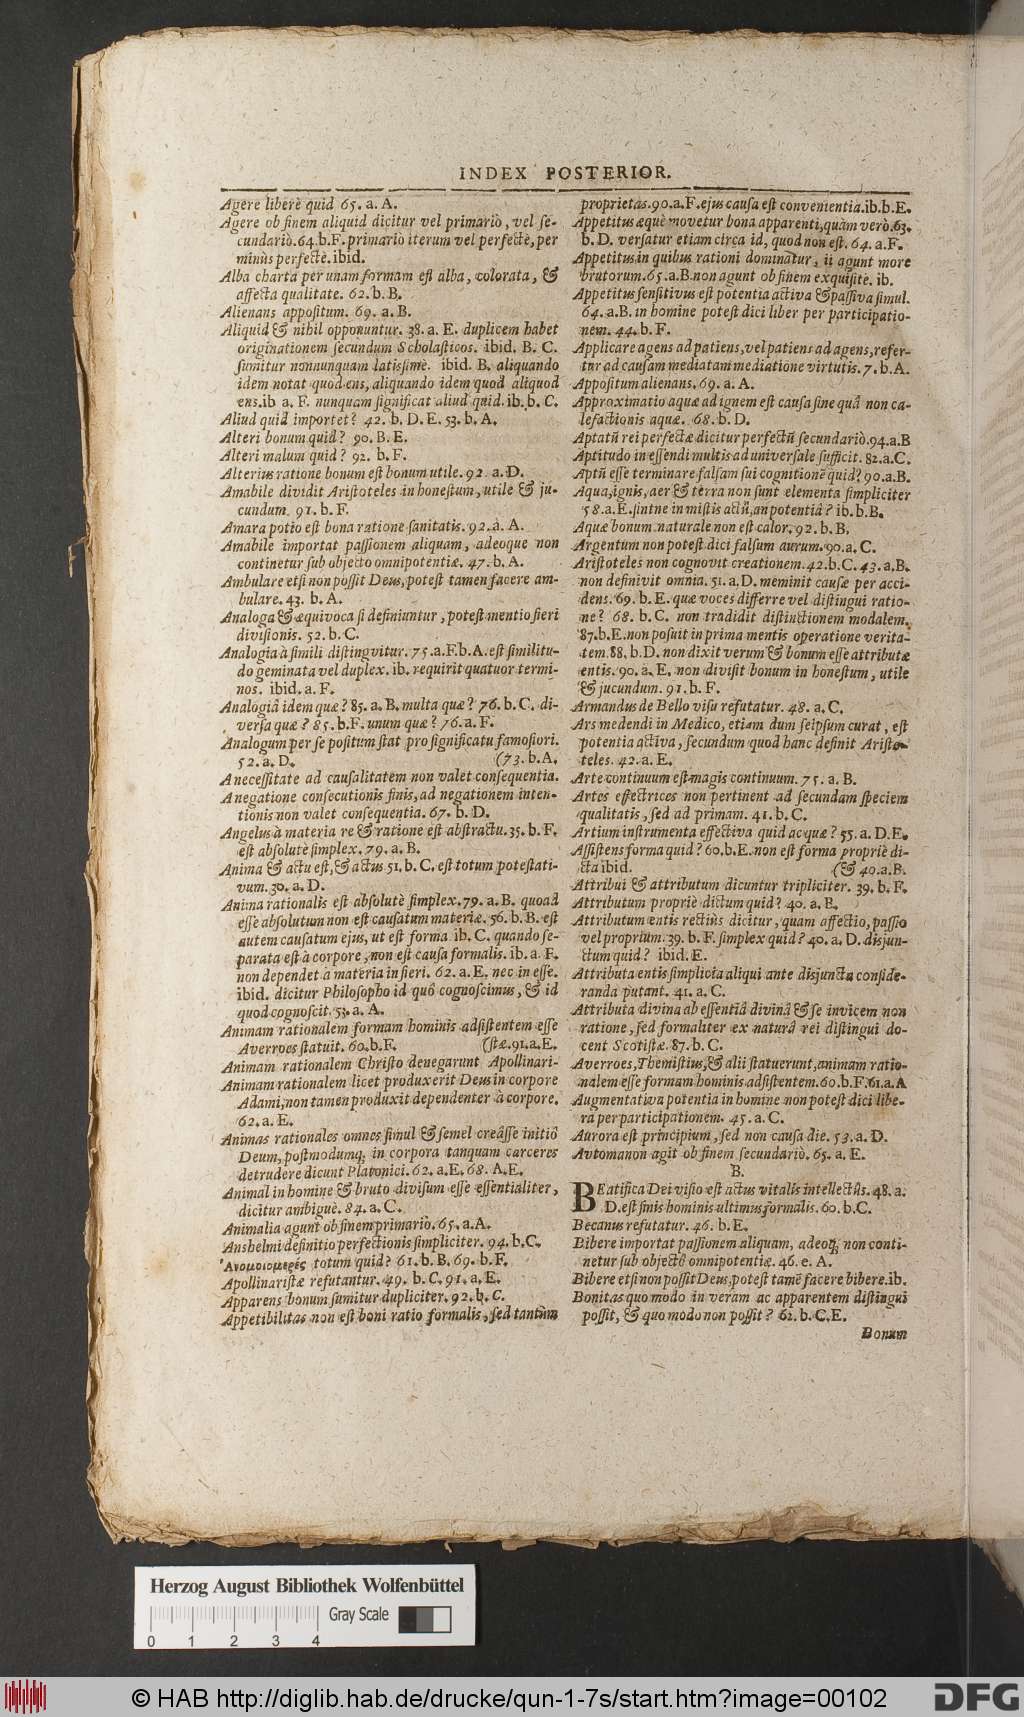 INDEX POSTERIOR.
Agere liberè quid 65. a. A.
Agere ob finem aliquid dicitur vel primariò, vel se-
cundariò. 64. b. F. primariò iterum vel perfectè, per
minùs perfectè. ibid.
Alba charta per unam formam est alba, colorata, &
affecta qualitate. 62. b. B.
Alienans appositum. 69. a. B.
Aliquid & nihil opponuntur. 38. a. E. duplicem habet
originationem secundum Scholasticos. ibid. B. C.
sumitur nonnunquam latissimè. ibid. B. aliquando
idem notat quod ens, aliquando idem quod aliquod
ens. ib a. F. nunquam significat aliud quid. ib. b. C.
Aliud quid importet? 42. b. D. E. 53. b. A.
Alteri bonum quid? 90. B. E.
Alteri malum quid? 92. b. F.
Alterius ratione bonum est bonum utile. 92. a. D.
Amabile dividit Aristoteles in honestum, utile & ju-
cundum. 91. b. F.
Amara potio est bona ratione sanitatis. 92. a. A.
Amabile importat passionem aliquam, adeoque non
continetur sub objecto omnipotentiæ. 47. b. A.
Ambulare etsi non possit Deus, potest tamen facere am-
bulare. 43. b. A.
Analoga & æquivoca si definiuntur, potest mentio fieri
divisionis. 52. b. C.
Analogia à simili distingvitur. 75. a. F. b. A. est similitu-
do geminata vel duplex. ib. requirit quatuor termi-
nos. ibid. a. F.
Analogiâ idem quæ? 85. a. B. multa quæ? 76. b. C. di-
versa quæ? 85. b. F. unum quæ? 76. a. F.
Analogum per se positum stat pro significatu famosiori.
52. a. D. (73. b. A.
A necessitate ad causalitatem non valet consequentia.
A negatione consecutionis finis, ad negationem inten-
tionis non valet consequentia. 67. b. D.
Angelus à materia re & ratione est abstractu. 35. b. F.
est absolutè simplex. 79. a. B.
Anima & actu est, & actus 51. b. C. est totum potestati-
vum. 30. a. D.
Anima rationalis est absolutè simplex. 79. a. B. quoad
esse absolutum non est causatum materiæ. 56. b. B. est
autem causatum ejus, ut est forma ib. C. quando se-
parata est à corpore, non est causa formalis. ib. a. F.
non dependet à materia in fieri. 62. a. E. nec in esse.
ibid. dicitur Philosopho id quô cognoscimus, & id
quod cognoscit. 53. a. A.
Animam rationalem formam hominis adsistentem esse
Averroes statuit. 60. b. F. (stæ. 91. a. E.
Animam rationalem Christo denegarunt Apollinari-
Animam rationalem licet produxerit Deus in corpore
Adami, non tamen produxit dependenter à corpore.
62. a. E.
Animas rationales omnes simul & semel creâsse initiô
Deum, postmodumq; in corpora tanquam carceres
detrudere dicunt Platonici. 62. a. E. 68. A. E.
Animal in homine & bruto divisum esse essentialiter,
dicitur ambiguè. 84. a. C.
Animalia agunt ob finem primariò. 65. a. A.
Anshelmi definitio perfectionis simpliciter. 94. b. C.
Ἀνομοιομερές totum quid? 61. b. B. 69. b. F.
Apollinaristæ refutantur. 49. b. C. 91. a. E.
Apparens bonum sumitur dupliciter. 92. b. C.
Appetibilitas non est boni ratio formalis, sed tantùm
proprietas. 90. a. F. ejus causa est convenientia. ib. b. E.
Appetitus æquè movetur bona apparenti, quàm verò. 63.
b. D. versatur etiam circa id, quod non est. 64. a. F.
Appetitus in quibus rationi dominatur, ii agunt more
brutorum. 65. a. B. non agunt ob finem exquisitè. ib.
Appetitus sensitivus est potentia activa & passiva simul.
64. a. B. in homine potest dici liber per participatio-
nem. 44. b. F.
Applicare agens ad patiens, vel patiens ad agens, refer-
tur ad causam mediatam mediatione virtutis. 7. b. A.
Appositum alienans. 69. a. A.
Approximatio aquæ ad ignem est causa sine quâ non ca-
lefactionis aquæ. 68. b. D.
Aptatũ rei perfectæ dicitur perfectũ secundariò. 94. a. B
Aptitudo in essendi multis ad universale sufficit. 82. a. C.
Aptũ esse terminare falsam sui cognitionẽ quid? 90. a. B.
Aqua, ignis, aer & terra non sunt elementa simpliciter
58. a. E. sintne in mistis actũ, an potentiâ? ib. b. B.
Aquæ bonum naturale non est calor. 92. b. B.
Argentum non potest dici falsum aurum. 90. a. C.
Aristoteles non cognovit creationem. 42. b. C. 43. a. B.
non definivit omnia. 51. a. D. meminit causæ per acci-
dens. 69. b. E. quæ voces differre vel distingui ratio-
ne? 68. b. C. non tradidit distinctionem modalem.
87. b. E. non posuit in prima mentis operatione verita-
tem. 88. b. D. non dixit verum & bonum esse attributæ
entis. 90. a. E. non divisit bonum in honestum, utile
& jucundum. 91. b. F.
Armandus de Bello visu refutatur. 48. a. C.
Ars medendi in Medico, etiam dum seipsum curat, est
potentia activa, secundum quod hanc definit Aristo-
teles. 42. a. E.
Arte continuum est magis continuum. 75. a. B.
Artes effectrices non pertinent ad secundam speciem
qualitatis, sed ad primam. 41. b. C.
Artium instrumenta effectiva quid ac quæ? 55. a. D. E.
Assistens forma quid? 60. b. E. non est forma propriè di-
cta ibid. (& 40. a. B.
Attribui & attributum dicuntur tripliciter. 39. b. F.
Attributum propriè dictum quid? 40. a. B.
Attributum entis rectiùs dicitur, quam affectio, passio
vel proprium. 39. b. F. simplex quid? 40. a. D. disjun-
ctum quid? ibid. E.
Attributa entis simplicia aliqui ante disjuncta conside-
randa putant. 41. a. C.
Attributa divina ab essentiâ divinâ & se invicem non
ratione, sed formaliter ex naturâ rei distingui do-
cent Scotistæ. 87. b. C.
Averroes, Themistius, & alii statuerunt, animam ratio-
nalem esse formam hominis adsistentem. 60. b. F. 61. a. A
Augmentativa potentia in homine non potest dici libe-
ra per participationem. 45. a. C.
Aurora est principium, sed non causa die. 53. a. D.
Avtomanon agit ob finem secundariò. 65. a. E.
B.
BEatifica Dei visio est actus vitalis intellectûs. 48. a.
D. est finis hominis ultimus formalis. 60. b. C.
Becanus refutatur. 46. b. E.
Bibere importat passionem aliquam, adeoq; non conti-
netur sub objectô omnipotentiæ. 46. e. A.
Bibere etsi non possit Deus, potest tamẽ facere bibere. ib.
Bonitas quo modo in veram ac apparentem distingui
possit, & quo modo non possit? 62. b. C. E.
Bonum
Herzog August Bibliothek Wolfenbüttel
Gray Scale
0 1 2 3 4
© HAB http://diglib.hab.de/drucke/qun-1-7s/start.htm?image=00102
DFG